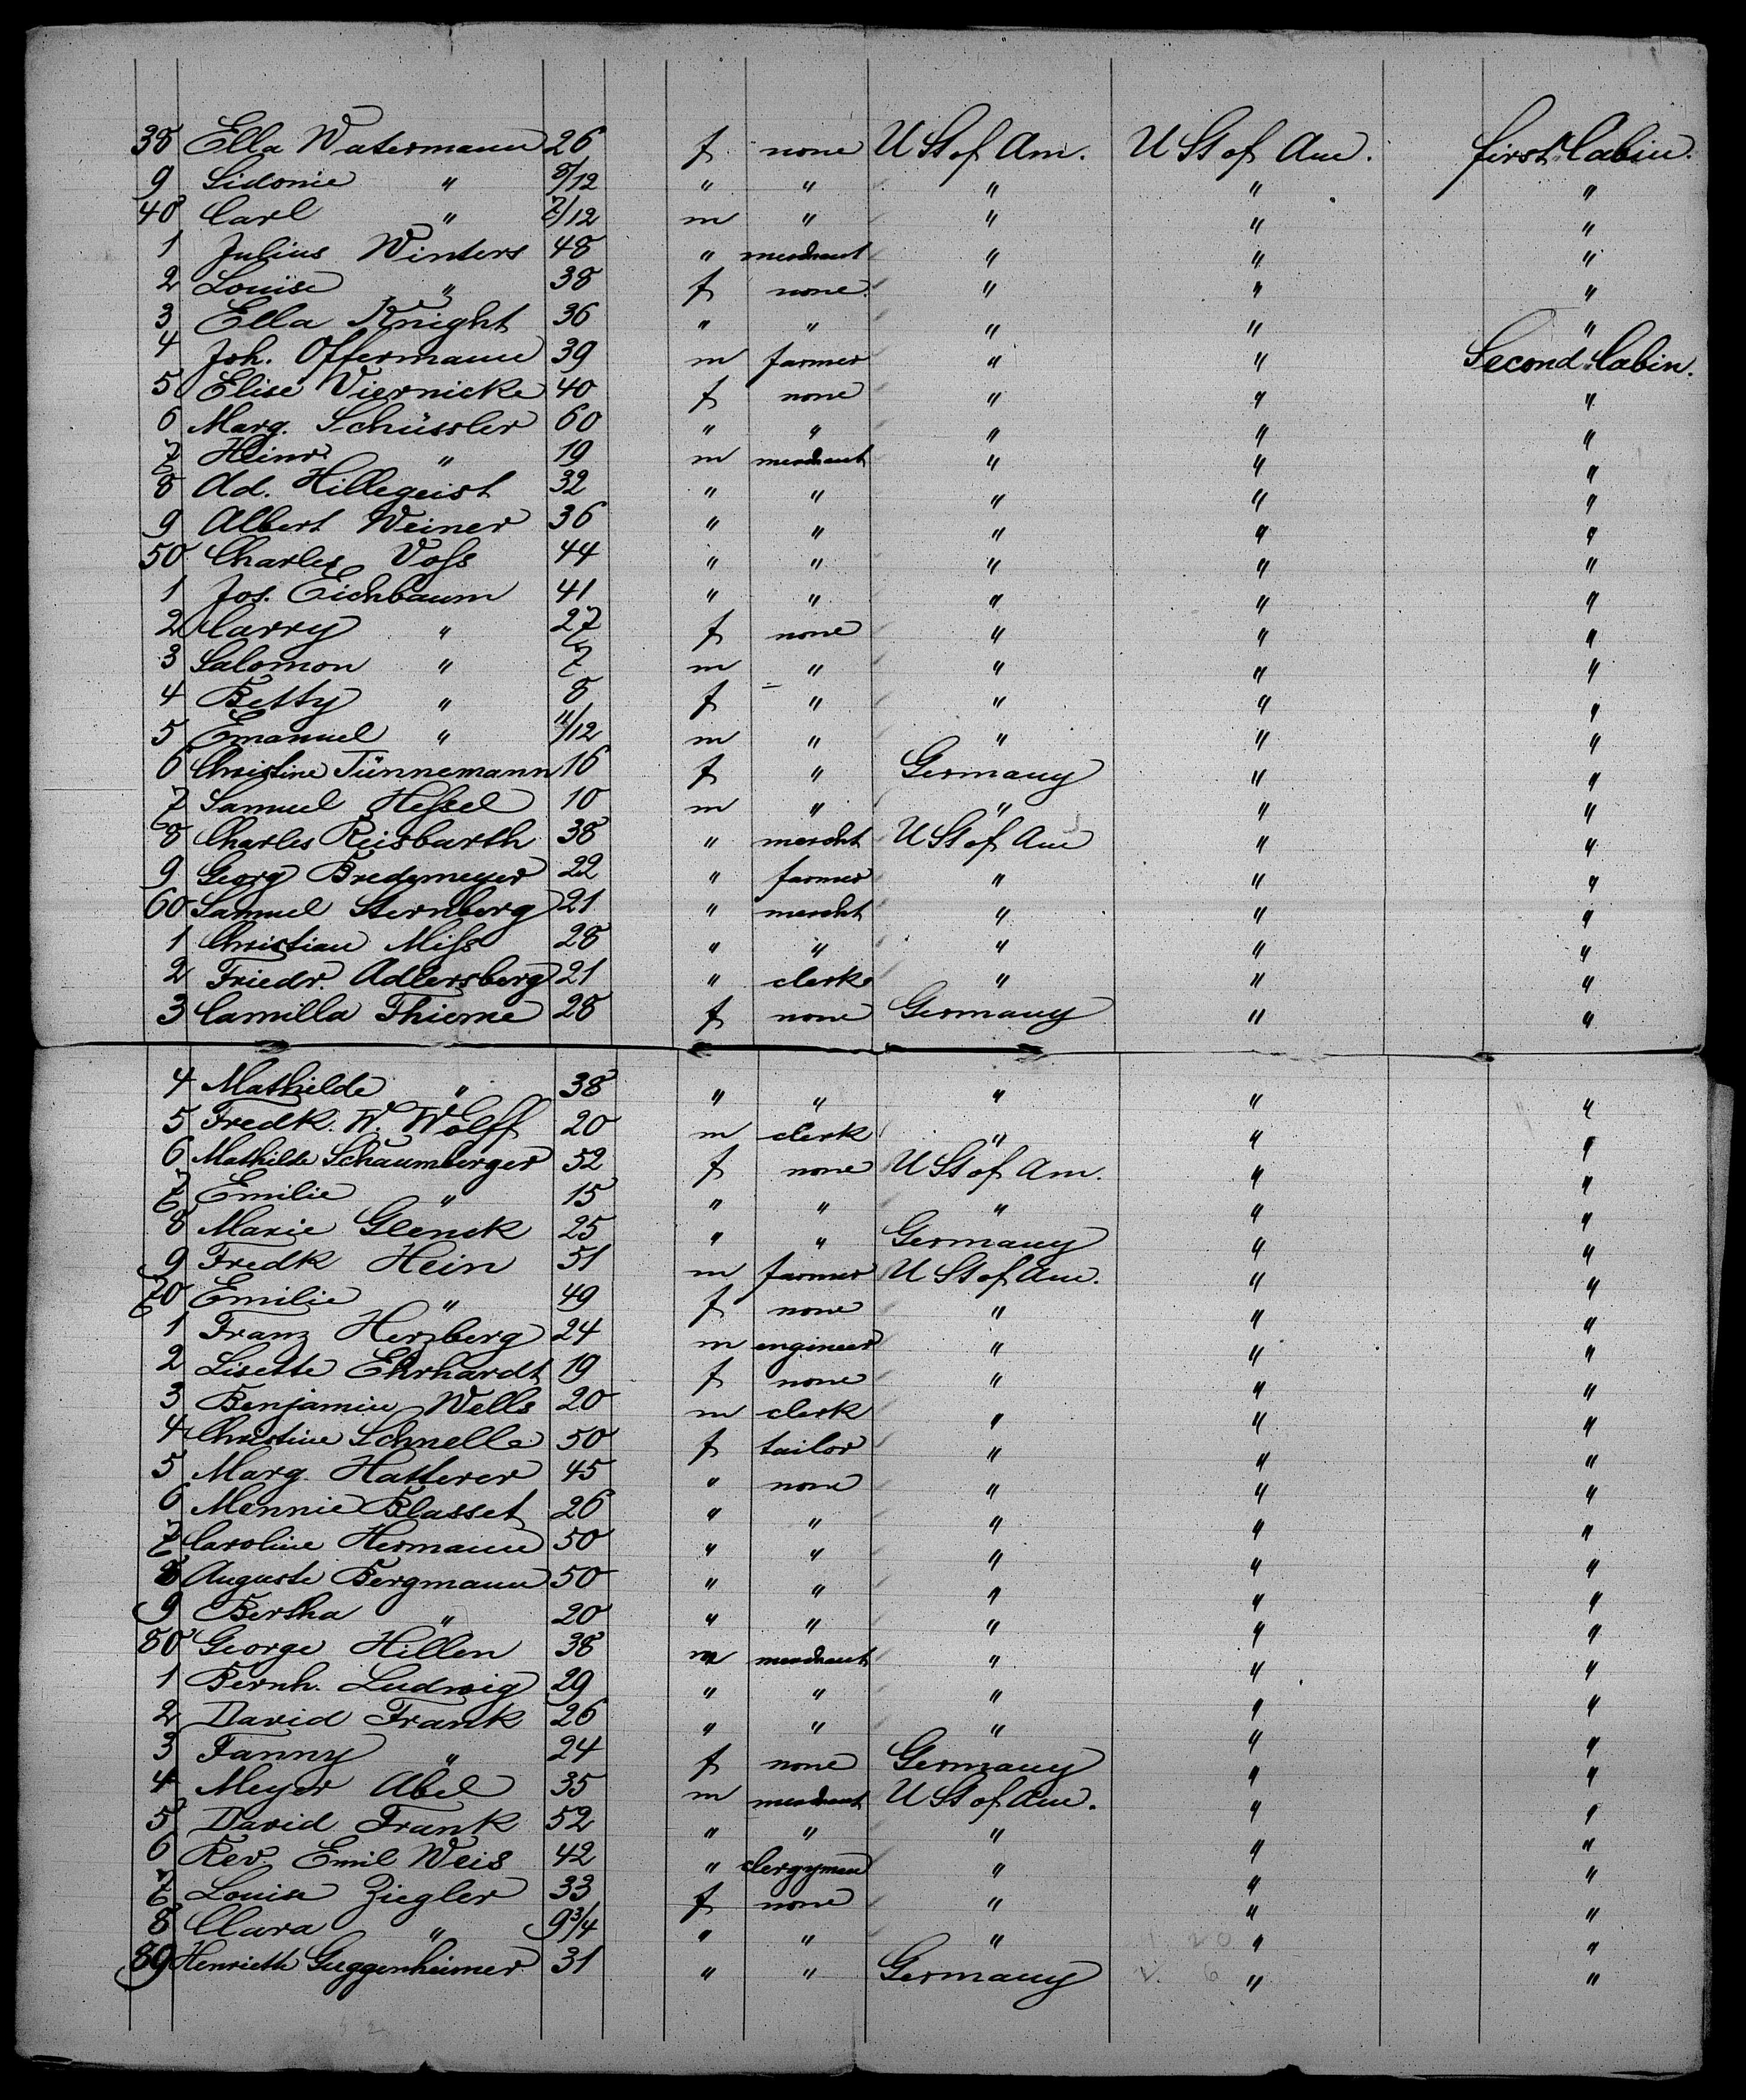 38 Ella Watermann 26 f none U St of Am. U St of Am. first Cabin.
9 Sidonie " 8/12 " " " " "
40 Carl " 7/12 m " " " "
1 Julius Winters 48 " merchant " " "
2 Louise " 38 f none " " "
3 Ella Knight 36 " " " " "
4 Joh. Offermann 39 m farmer " " Second Cabin.
5 Elise Viernicke 40 f none " " "
6 Marg. Schüssler 60 " " " " "
7 Heinr. " 19 m merchant " " "
8 Ad. Hillegeist 32 " " " " "
9 Albert Weiner 36 " " " " "
50 Charles Voss 44 " " " " "
1 Jos. Eichbaum 41 " " " " "
2 Carry " 27 f none " " "
3 Salomon " 7 m " " " "
4 Betty " 8 f " " " "
5 Emanuel " 11/12 m " " " "
6 Christine Tünnemann 16 f " Germany " "
7 Samuel Hessel 10 m " " " "
8 Charles Reisbarth 38 " mercht U St of Am " "
9 Georg Bredemeyer 22 " farmer " " "
60 Samuel Sternberg 21 " mercht " " "
1 Christian Miss 28 " " " " "
2 Friedr. Adlersberg 21 " clerk " " "
3 Camilla Thieme 28 f none Germany " "
4 Mathilde " 38 " " " " "
5 Fredk. W. Wolff 20 m clerk " " "
6 Mathilde Schaumberger 52 f none U St of Am. " "
7 Emilie " 15 " " " " "
8 Marie Glenck 25 " " Germany " "
9 Fredk Hein 51 m farmer U St of Am. " "
70 Emilie " 49 f none " " "
1 Franz Herzberg 24 m engineer " " "
2 Lisette Ehrhardt 19 f none " " "
3 Benjamin Wells 20 m clerk " " "
4 Christine Schnelle 50 f tailor " " "
5 Marg. Hatterer 45 " none " " "
6 Mennie Blasset 26 " " " " "
7 Caroline Hermann 50 " " " " "
8 Auguste Bergmann 50 " " " " "
9 Bertha " 20 " " " " "
80 George Hillen 38 m merchant " " "
1 Bernh. Ludwig 29 " " " " "
2 David Frank 26 " " " " "
3 Fanny " 24 f none Germany " "
4 Meyer Abel 35 m merchant U St of Am. " "
5 David Frank 52 " " " " "
6 Rev. Emil Weis 42 " clergyman " " "
7 Louise Ziegler 33 f none " " "
8 Clara " 9 3/4 " " " " "
89 Henrieth Guggenheimer 31 " " Germany " "